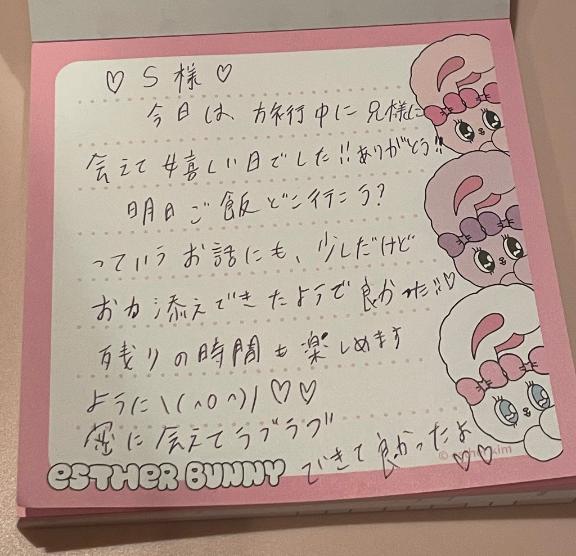 ♡ S 様 ♡
今日は、旅行中に兄様に
会えて嬉しい日でした!!ありがとう!!
明日ご飯どこ行こう?
っていうお話にも、少しだけど
お力添えできたようで良かった!!♡
残りの時間も楽しめます
ように\(^o^)/♡♡
密に会えてラブラブ
できて良かったよ
♡♡
ESTHER BUNNY